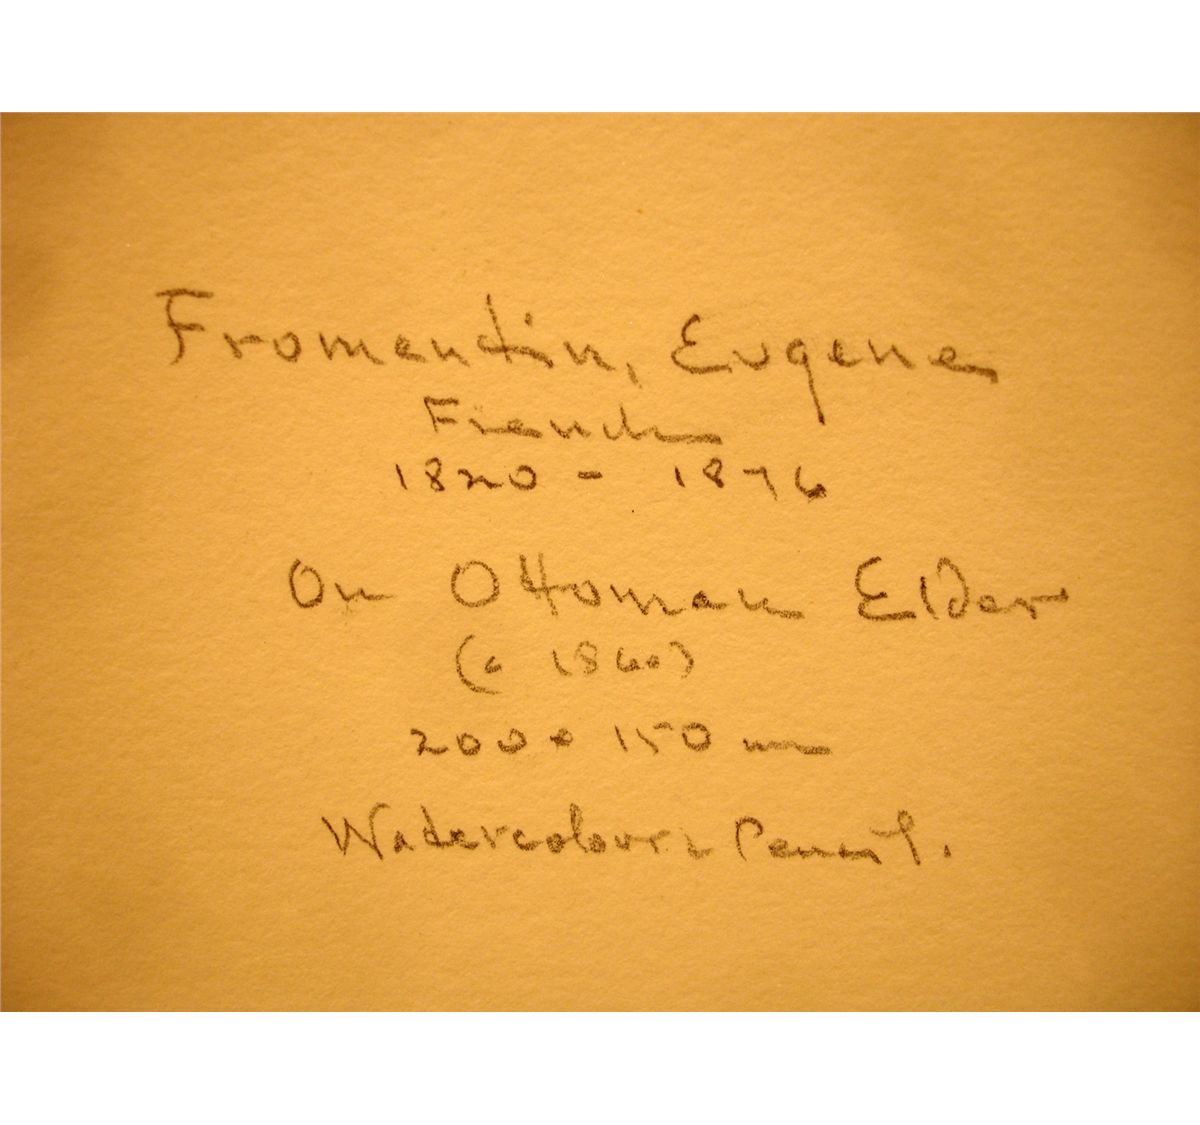 Fromentin, Eugene
French
1820 - 1876
On Ottoman Elder
(c 1860)
200 x 150 mm
Watercolour & Pencil.